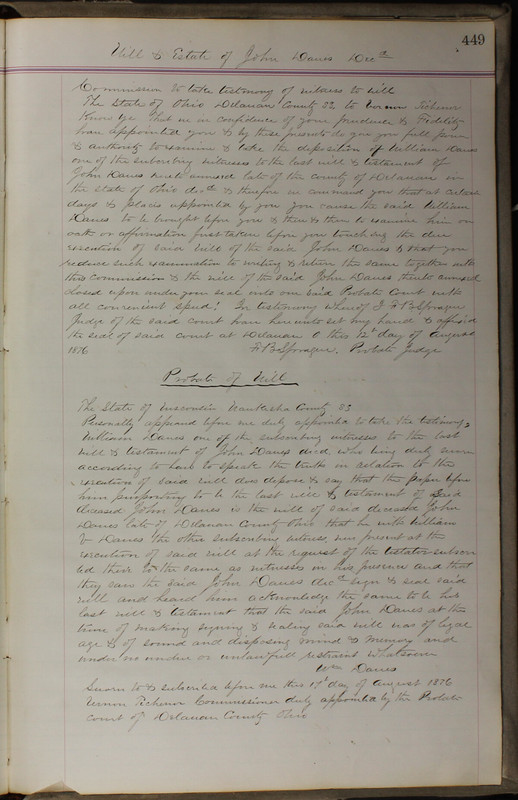 449
Will & Estate of John Danes Decd
Commission to take testimony of witness to will
The State of Ohio Delaware County SS to Vernon Tichenor
Know ye That we in confidence of your prudence & Fidelity
have appointed you & by these presents do give you full power
& authority to examine & take the deposition of William Danes
one of the subscribing witnesses to the last will & testament of
John Danes hereto annexed late of the county of Delaware in
the state of Ohio decd & therefore we command you that at certain
days & places appointed by you you cause the said William
Danes to be brought before you & then & there to examine him on
oath or affirmation first taken before you touching the due
execution of said will of the said John Danes & that you
reduce such examination to writing & return the same together with
this commission & the will of the said John Danes thereto annexed
closed up under your seal into our said Probate Court with
all convenient speed. In testimony whereof I F B Sprague
Judge of the said court have hereunto set my hand & affixed
the seal of said court at Delaware O this 12" day of August
1876 F. B. Sprague, Probate Judge
Probate of Will
The State of Wisconsin Waukesha County SS
Personally appeared before me duly appointed to take the testimony
William Danes one of the subscribing witnesses to the last
will & testament of John Danes decd who being duly sworn
according to law to speak the truth in relation to the
execution of said will does depose & say that the paper before
him purporting to be the last will & testament of said
deceased John Danes is the will of said deceased John
Danes late of Delaware County Ohio that he with William
Danes the other subscribing witness, were present at the
execution of said will at the request of the testator subscri
bed their to the same as witnesses in his presence and that
they saw the said John Danes decd sign & seal said
will and heard him acknowledge the same to be his
last will & testament that the said John Danes at the
time of making signing & sealing said will was of legal
age & of sound and disposing mind & memory and
under no undue or unlawfull restraint whatsoever
Wm Danes
Sworn to & subscribed before me this 17" day of August 1876
Vernon Tichenor Commissioner duly appointed by the Probate
court of Delaware County Ohio